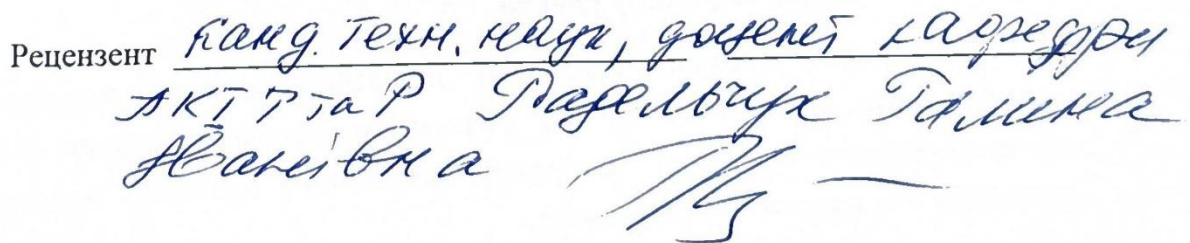 Рецензент канд. техн. наук, доцент кафедри
АКІТ та Р Радельчук Галина
Іванівна